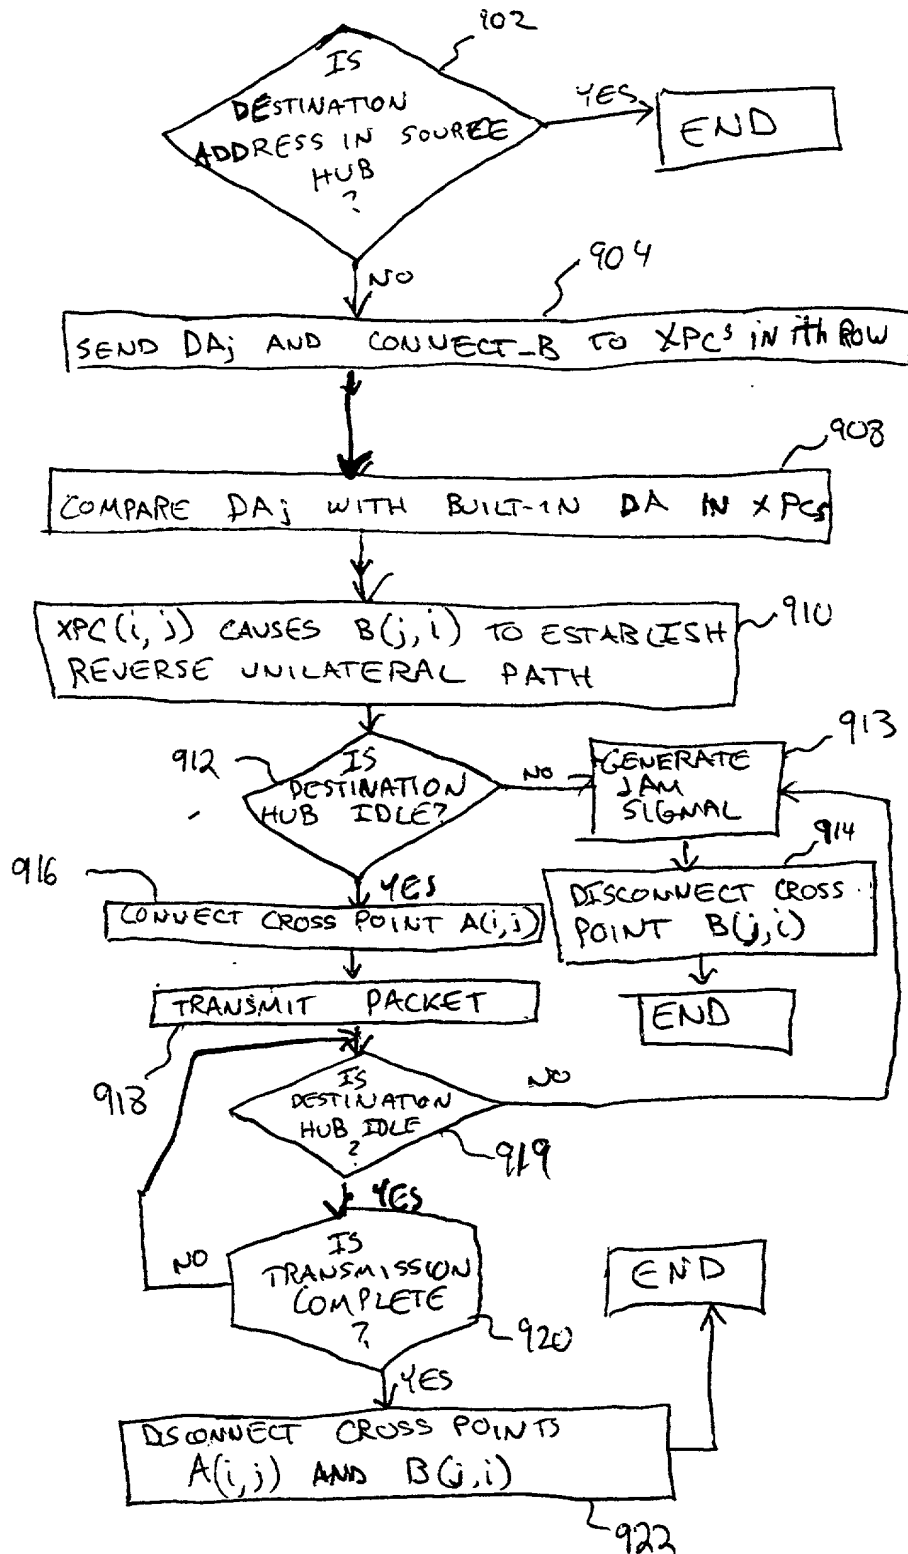 902
IS
DESTINATION
ADDRESS IN SOURCE
HUB
?
YES
END
NO
904
SEND DAj AND CONNECT_B TO XPCs IN ith ROW
908
COMPARE DAj WITH BUILT-IN DA IN XPCs
XPC(i,j) CAUSES B(j,i) TO ESTABLISH
REVERSE UNILATERAL PATH
910
912
IS
DESTINATION
HUB IDLE?
NO
GENERATE
JAM
SIGNAL
913
914
916
YES
CONNECT CROSS POINT A(i,j)
DISCONNECT CROSS
POINT B(j,i)
TRANSMIT PACKET
END
918
IS
DESTINATION
HUB IDLE
?
NO
919
YES
NO
IS
TRANSMISSION
COMPLETE
?
920
END
YES
DISCONNECT CROSS POINTS
A(i,j) AND B(j,i)
922